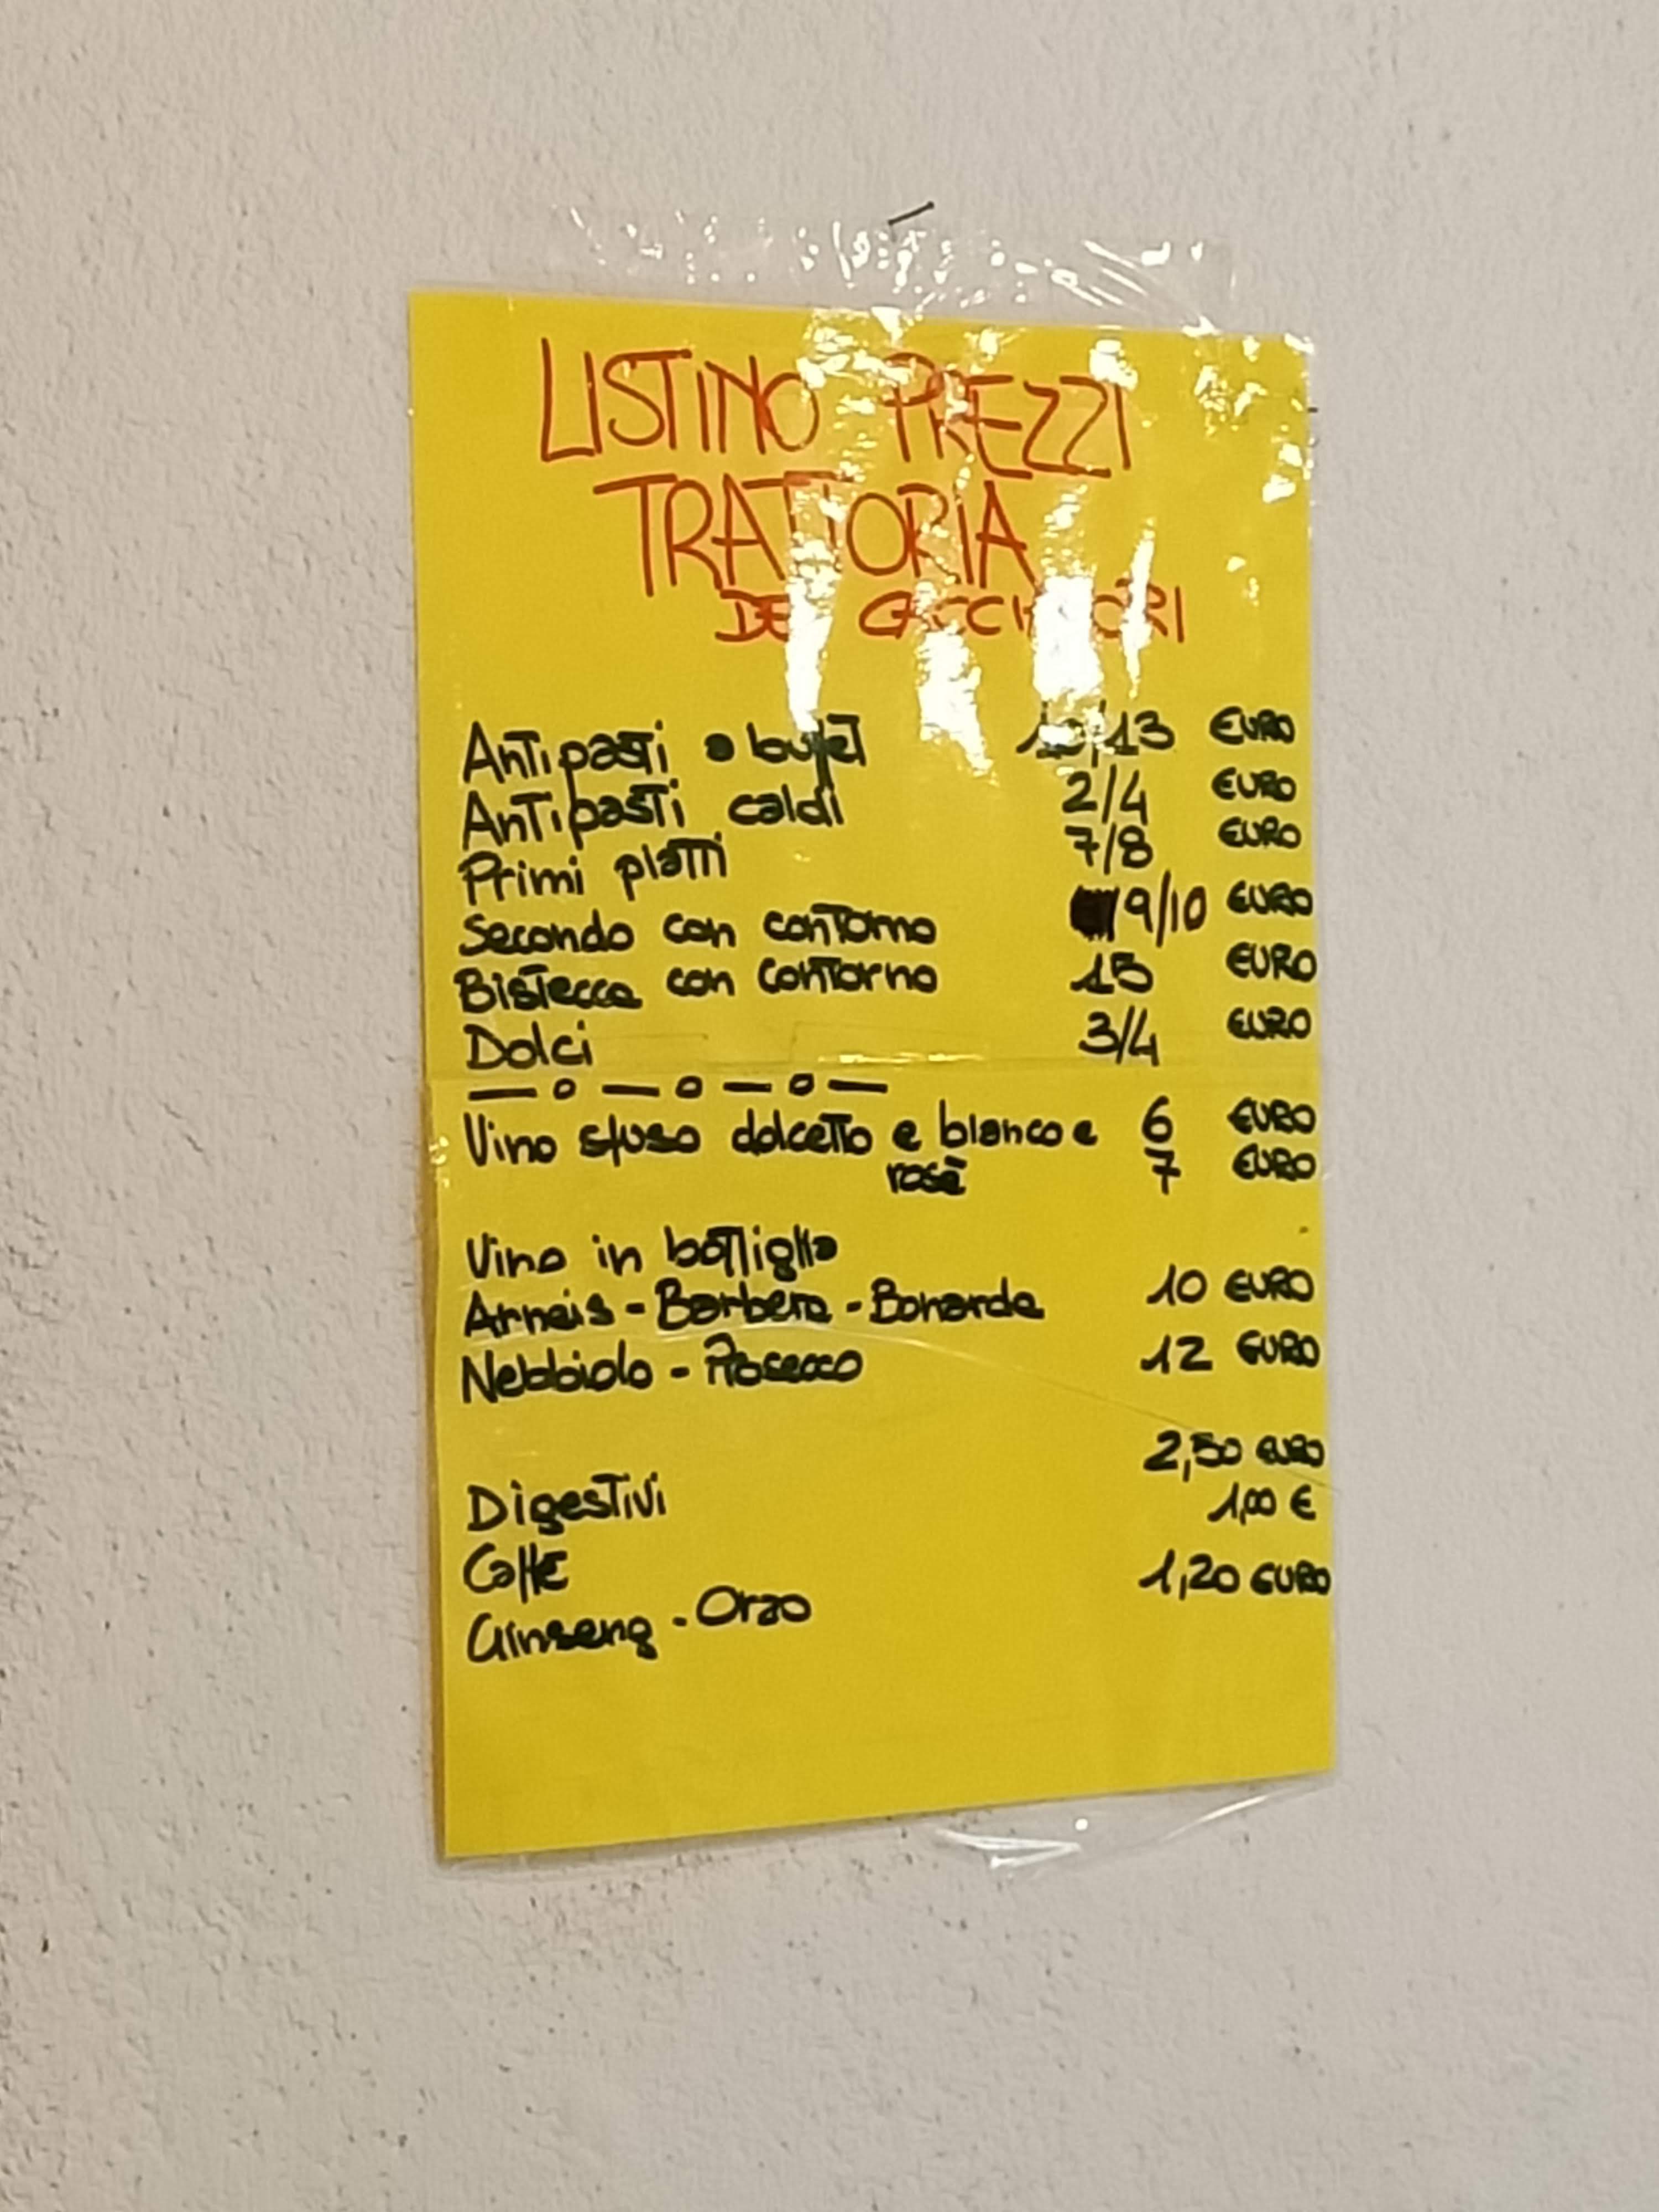 LISTINO PREZZI
TRATTORIA
DEI CACCIATORI
Antipasti a bufet 10/13 EURO
Antipasti caldi 2/4 EURO
Primi piatti 7/8 EURO
Secondo con contorno 9/10 EURO
Bistecca con contorno 15 EURO
Dolci 3/4 EURO
Vino sfuso dolcetto e bianco e 6 EURO
rosè 7 EURO
Vino in bottiglia
Arneis - Barbera - Bonarda 10 EURO
Nebbiolo - Prosecco 12 EURO
Digestivi 2,50 EURO
Caffè 1,00 €
Ginseng - Orzo 1,20 EURO